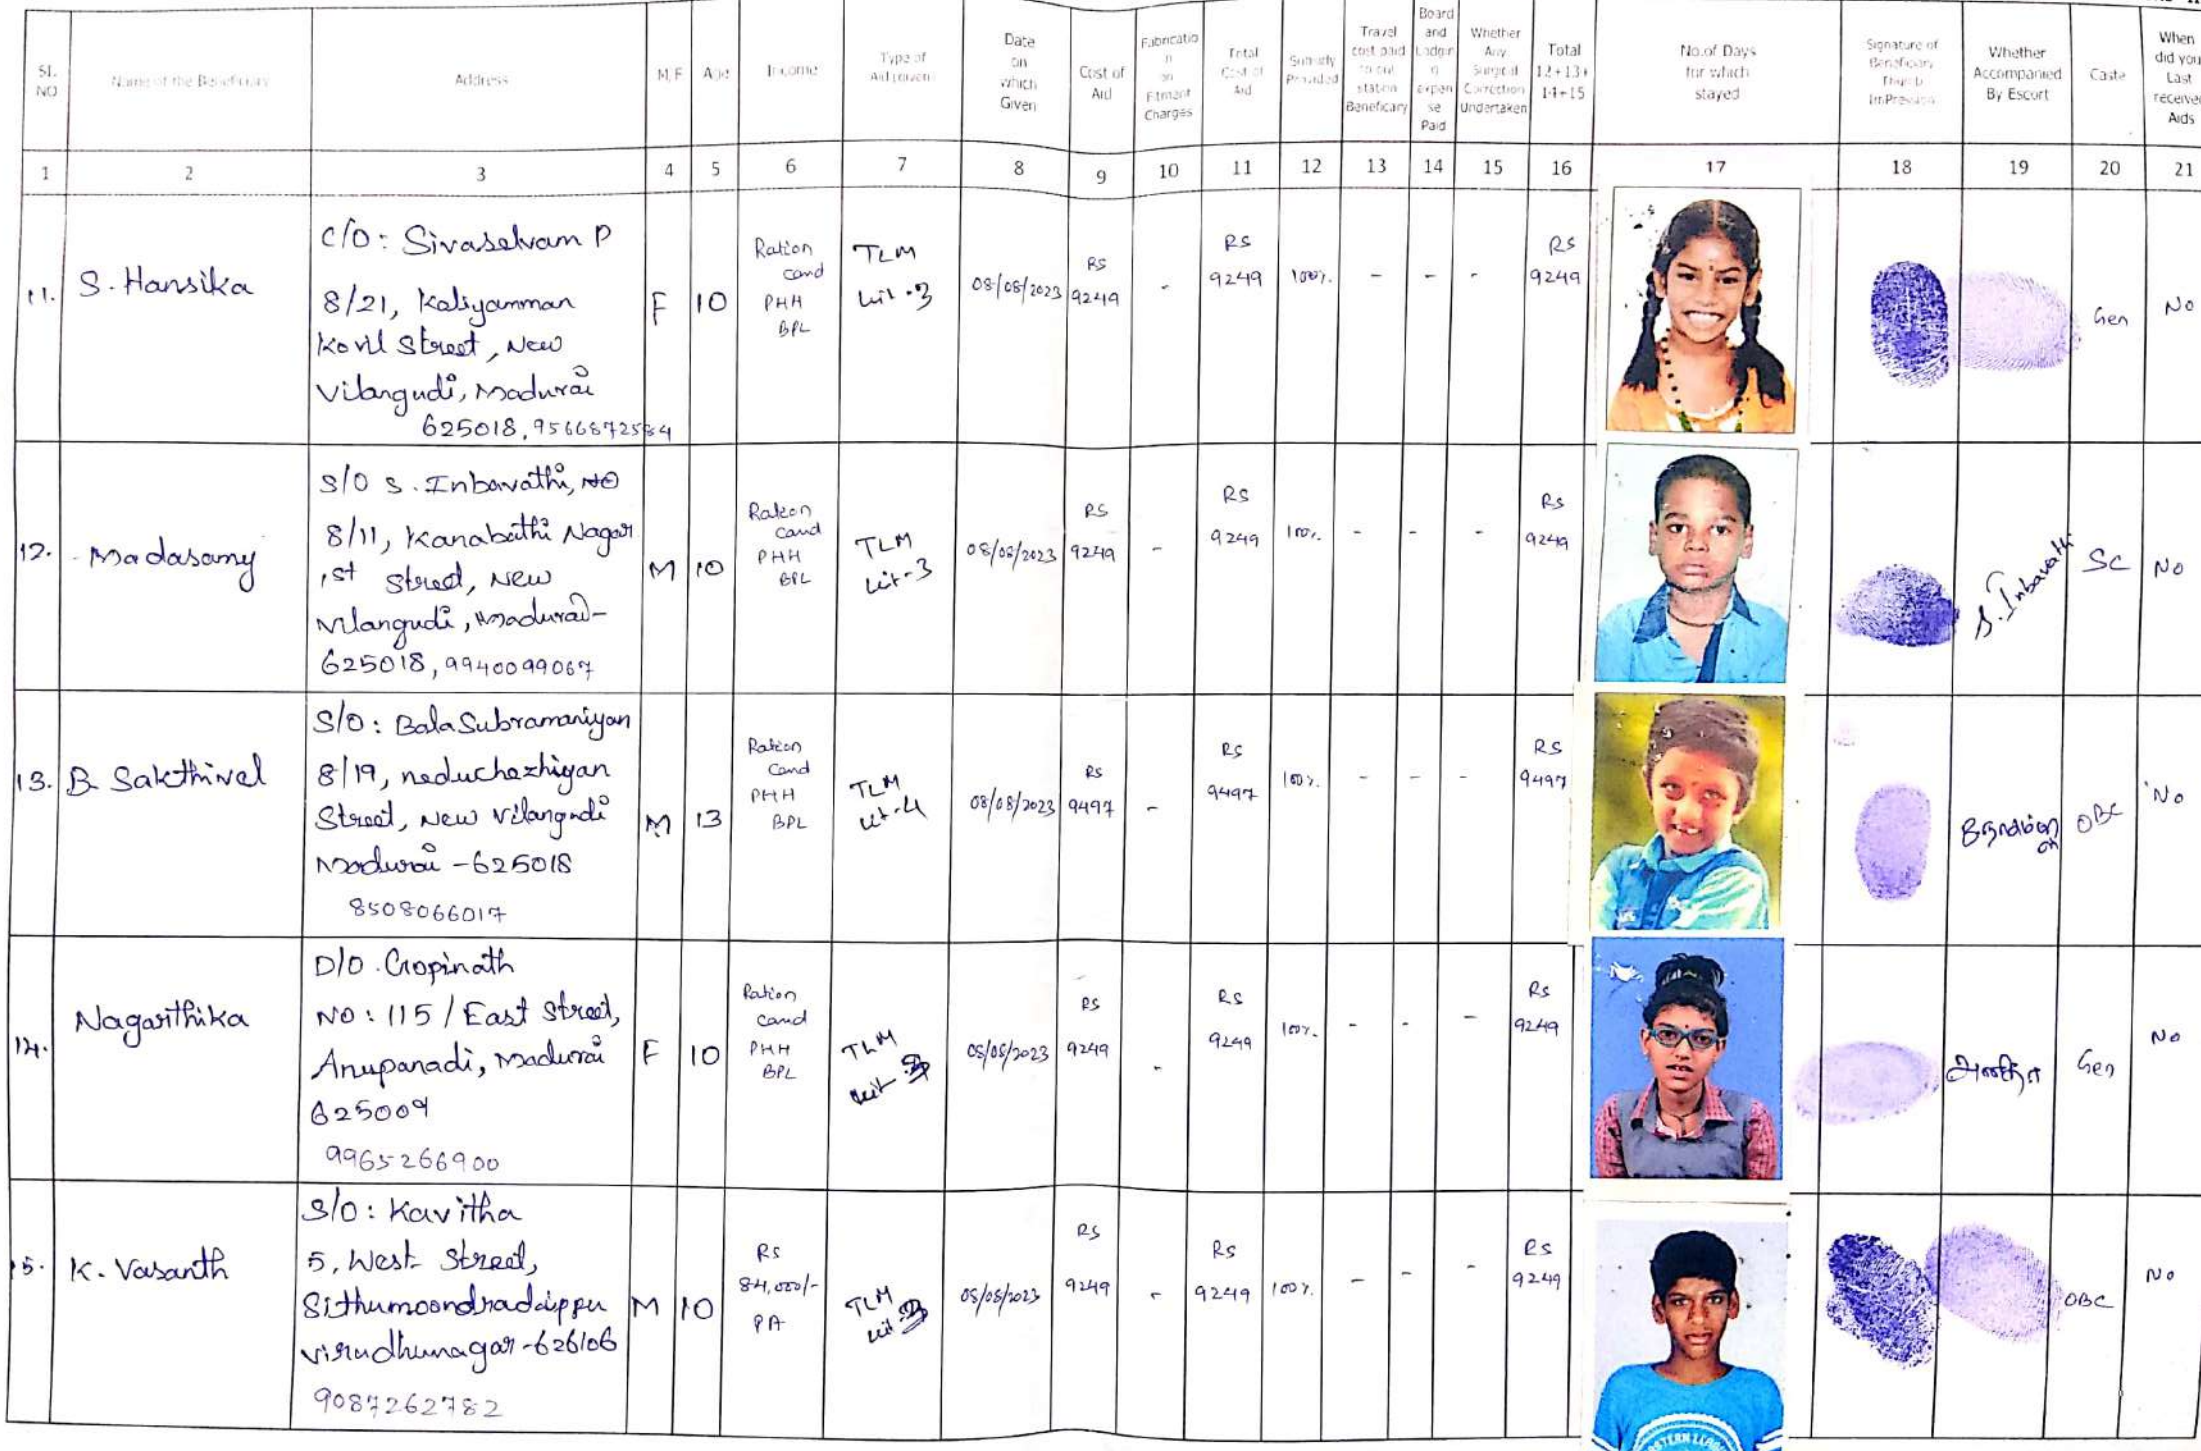 Sl. NO
Name of the Beneficiary
Address
M.F
Age
Income
Type of Aid (given)
Date on which Given
Cost of Aid
Fabricatio n on Fitment Charges
Total Cost of Aid
Subsidy Provided
Travel cost paid to out station Beneficary
Board and Lodgin g expen se Paid
Whether Any Surgical Correction Undertaken
Total 12+13+ 14+15
No.of Days for which stayed
Signature of Beneficiary Thumb ImPression
Whether Accompanied By Escort
Caste
When did you Last receive Aids
1 2 3 4 5 6 7 8 9 10 11 12 13 14 15 16 17 18 19 20 21
11. S. Hansika
C/O: Sivaselvam P
8/21, Kaliyamman
Kovil Street, New
Vilangudi, Madurai
625018, 9566872584
F 10
Ration
card
PHH
BPL
TLM
kit-3
08/08/2023
RS
9249
-
RS
9249
100%.
- - -
RS
9249
Gen
No
12. Madasamy
S/O S. Inbavathi, NO
8/11, Kanabathi Nagar
1st Street, New
Vilangudi, Madurai-
625018, 9940099067
M 10
Ration
card
PHH
BPL
TLM
kit-3
08/08/2023
RS
9249
-
RS
9249
100%.
- - -
RS
9249
S. Inbavathi
SC
No
13. B. Sakthivel
S/O: BalaSubramaniyan
8/19, neduchezhiyan
Street, New Vilangudi
Madurai -625018
8508066017
M 13
Ration
Card
PHH
BPL
TLM
kit-4
08/08/2023
RS
9497
-
RS
9497
100%.
- - -
RS
9497
OBC
No
14. Nagarithika
D/O. Gopinath
NO: 115 / East Street,
Anupanadi, Madurai
625009
9965266900
F 10
Ration
card
PHH
BPL
TLM
kit-3
08/08/2023
RS
9249
-
RS
9249
100%.
- - -
RS
9249
Gen
No
15. K. Vasanth
S/O: Kavitha
5, West Street,
Sithumoondradaippu
virudhunagar-626106
9087262782
M 10
RS
84,000/-
PA
TLM
kit-3
08/08/2023
RS
9249
-
RS
9249
100%.
- - -
RS
9249
OBC
No